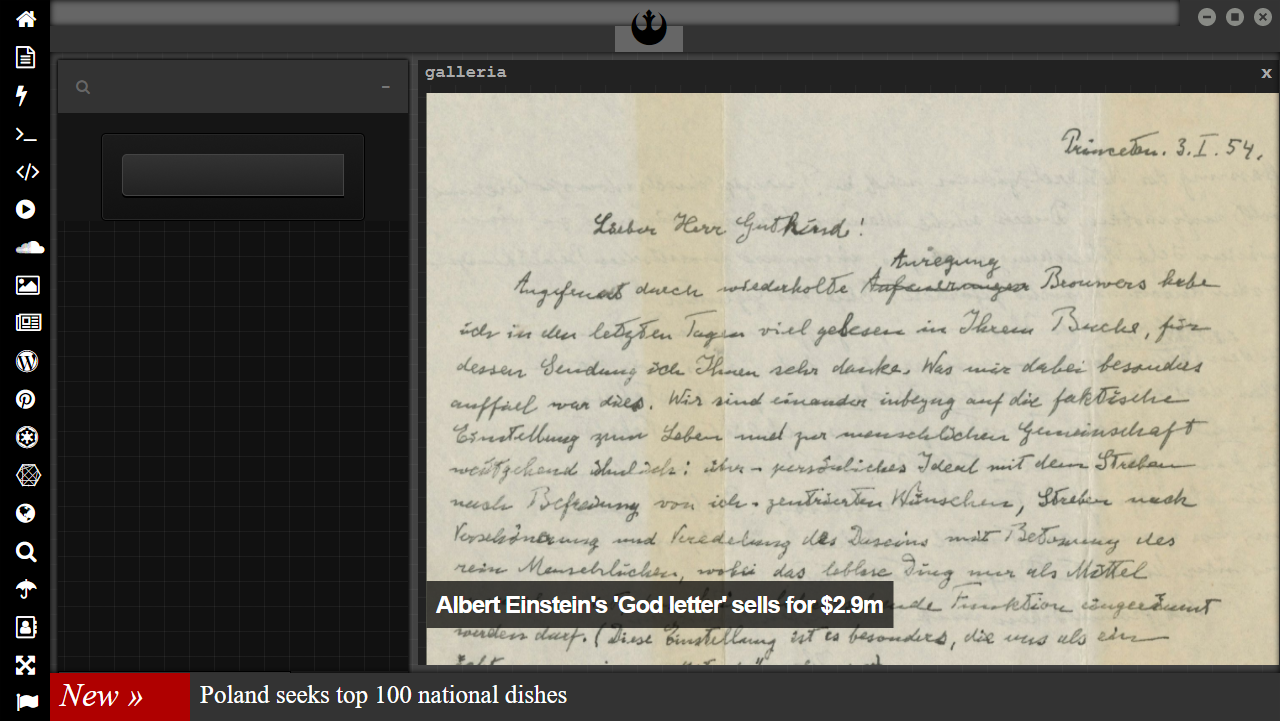 galleria
x
Princeton. 3. I. 54.
Lieber Herr Gutkind!
Anregung
Angefeuert durch wiederholte Brouwers habe
ich in den letzten Tagen viel gelesen in Ihrem Buche, für
dessen Sendung ich Ihnen sehr danke. Was mir dabei besonders
auffiel war dies. Wir sind einander inbezug auf die faktische
Einstellung zum Leben und zur menschlichen Gemeinschaft
weitgehend ähnlich: über-persönliches Ideal mit dem Streben
nach Befreiung von ich-zentrierten Wünschen, Streben nach
Verschönerung und Veredelung des Daseins mit Betonung des
rein Menschlichen, wobei das leblose Ding nur als Mittel
Funktion eingeräumt
Albert Einstein's 'God letter' sells for $2.9m
werden darf. (Diese Einstellung ist es besonders, die uns als ein
New » Poland seeks top 100 national dishes